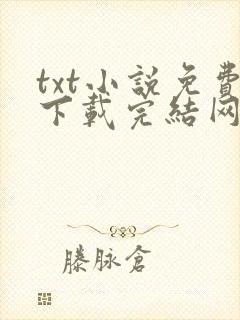 txt小說免費
下載完結网
滕脉倉